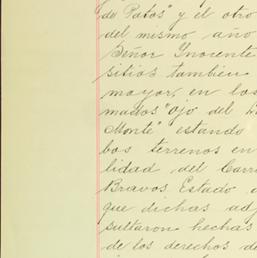 de Patos" y el otro
del mismo año
Señor Inocente
sitios tambien
mayor, en los
mados "Ojo del
Monte" estando
bos terrenos en
lidad del Carri
Bravos Estado
que dichas adj
sultaron hechas
de los derechos de